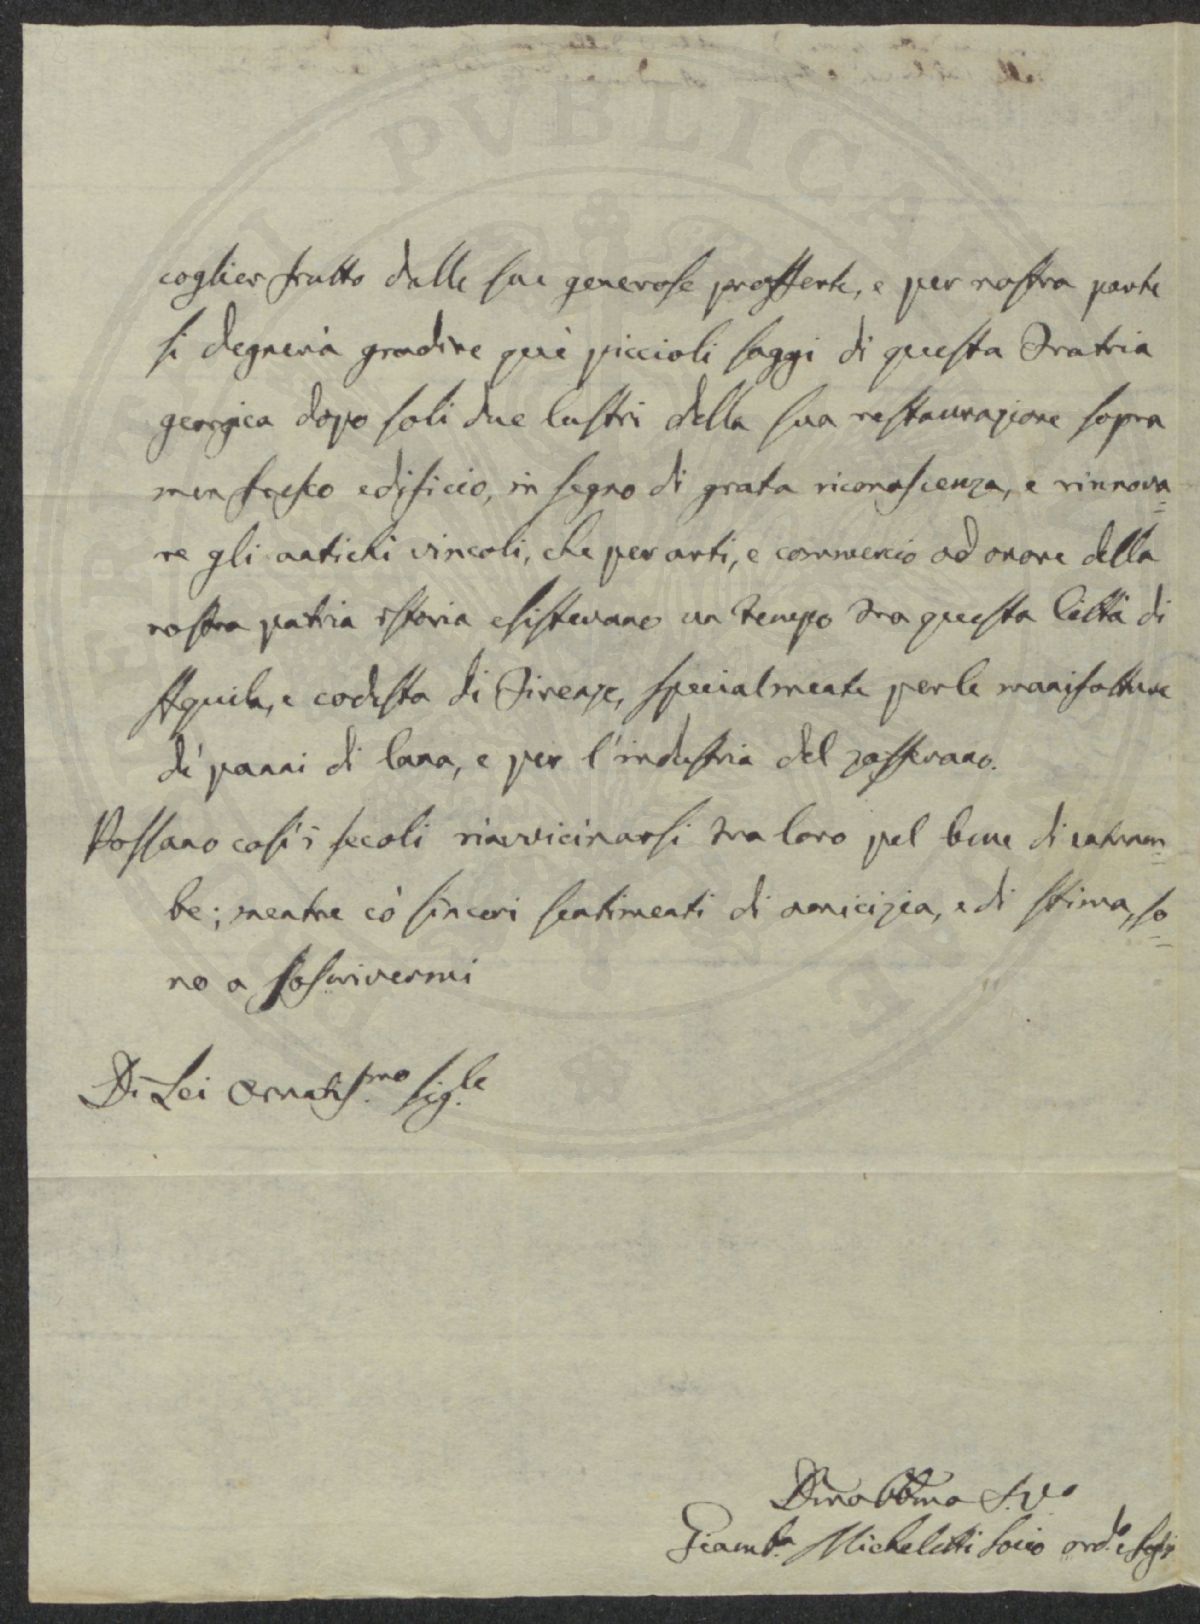 PVBLICA
coglier frutto dalle sue generose profferte, e per nostra parte
si degnerà gradire que' piccioli saggi di questa Fratria
georgica dopo soli due lustri della sua restaurazione sopra
men fosco edificio, in segno di grata riconoscenza, e rinnova=
re gli antichi vincoli, che per arti, e commercio ad onore della
nostra patria istoria esistevano un tempo tra questa Città di
Aquila, e codesta di Firenze, specialmente per le manifatture
de' panni di lana, e per l'industria del zafferano.
Possano così i secoli riavvicinarsi tra loro pel bene di entram=
be; mentre cò sinceri sentimenti di amicizia, e di stima, so=
no a soscrivermi
Di Lei Ornatis.mo Sig.le
S.V.o
Giamb.a Micheletti Socio ord.o e Seg.